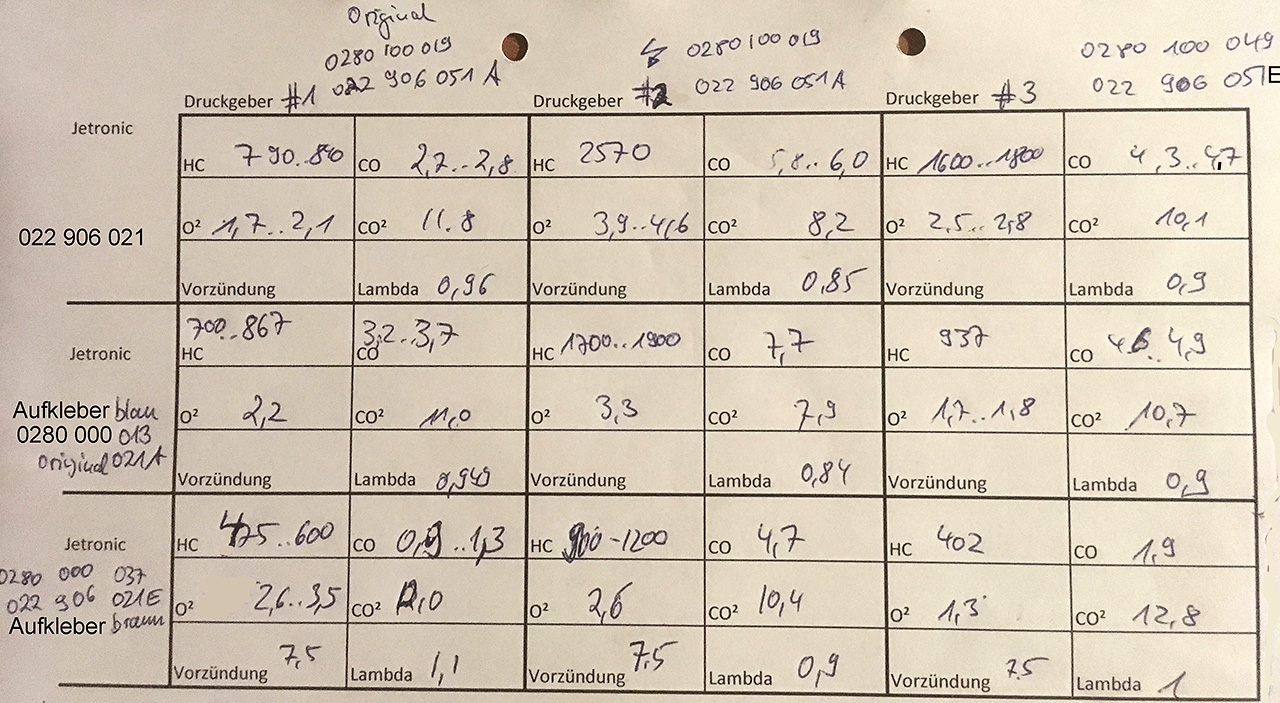 Original
0280 100 019
022 906 051 A
Druckgeber #1
0280 100 019
022 906 051A
Druckgeber #2
0280 100 049
022 906 051E
Druckgeber #3
Jetronic
022 906 021
HC 790..840 CO 2,7..2,8 HC 2570 CO 5,8..6,0 HC 1600..1800 CO 4,3..4,7
O² 1,7..2,1 CO² 11.8 O² 3,9..4,6 CO² 8,2 O² 2,5..2,8 CO² 10,1
Vorzündung Lambda 0,96 Vorzündung Lambda 0,85 Vorzündung Lambda 0,9
Jetronic
Aufkleber blau
0280 000 013
Original 021A
HC 700..867 CO 3,2..3,7 HC 1700..1900 CO 7,7 HC 937 CO 4,6..4,9
O² 2,2 CO² 11,0 O² 3,3 CO² 7,9 O² 1,7..1,8 CO² 10,7
Vorzündung Lambda 0,949 Vorzündung Lambda 0,84 Vorzündung Lambda 0,9
Jetronic
0280 000 037
022 906 021E
Aufkleber braun
HC 475..600 CO 0,9..1,3 HC 900-1200 CO 4,7 HC 402 CO 1,9
O² 2,6..3,5 CO² 12,0 O² 2,6 CO² 10,4 O² 1,3 CO² 12,8
Vorzündung 7,5 Lambda 1,1 Vorzündung 7,5 Lambda 0,9 Vorzündung 7.5 Lambda 1